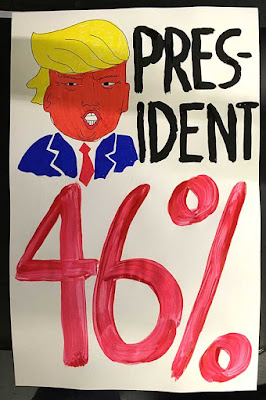 PRES-
IDENT
46%